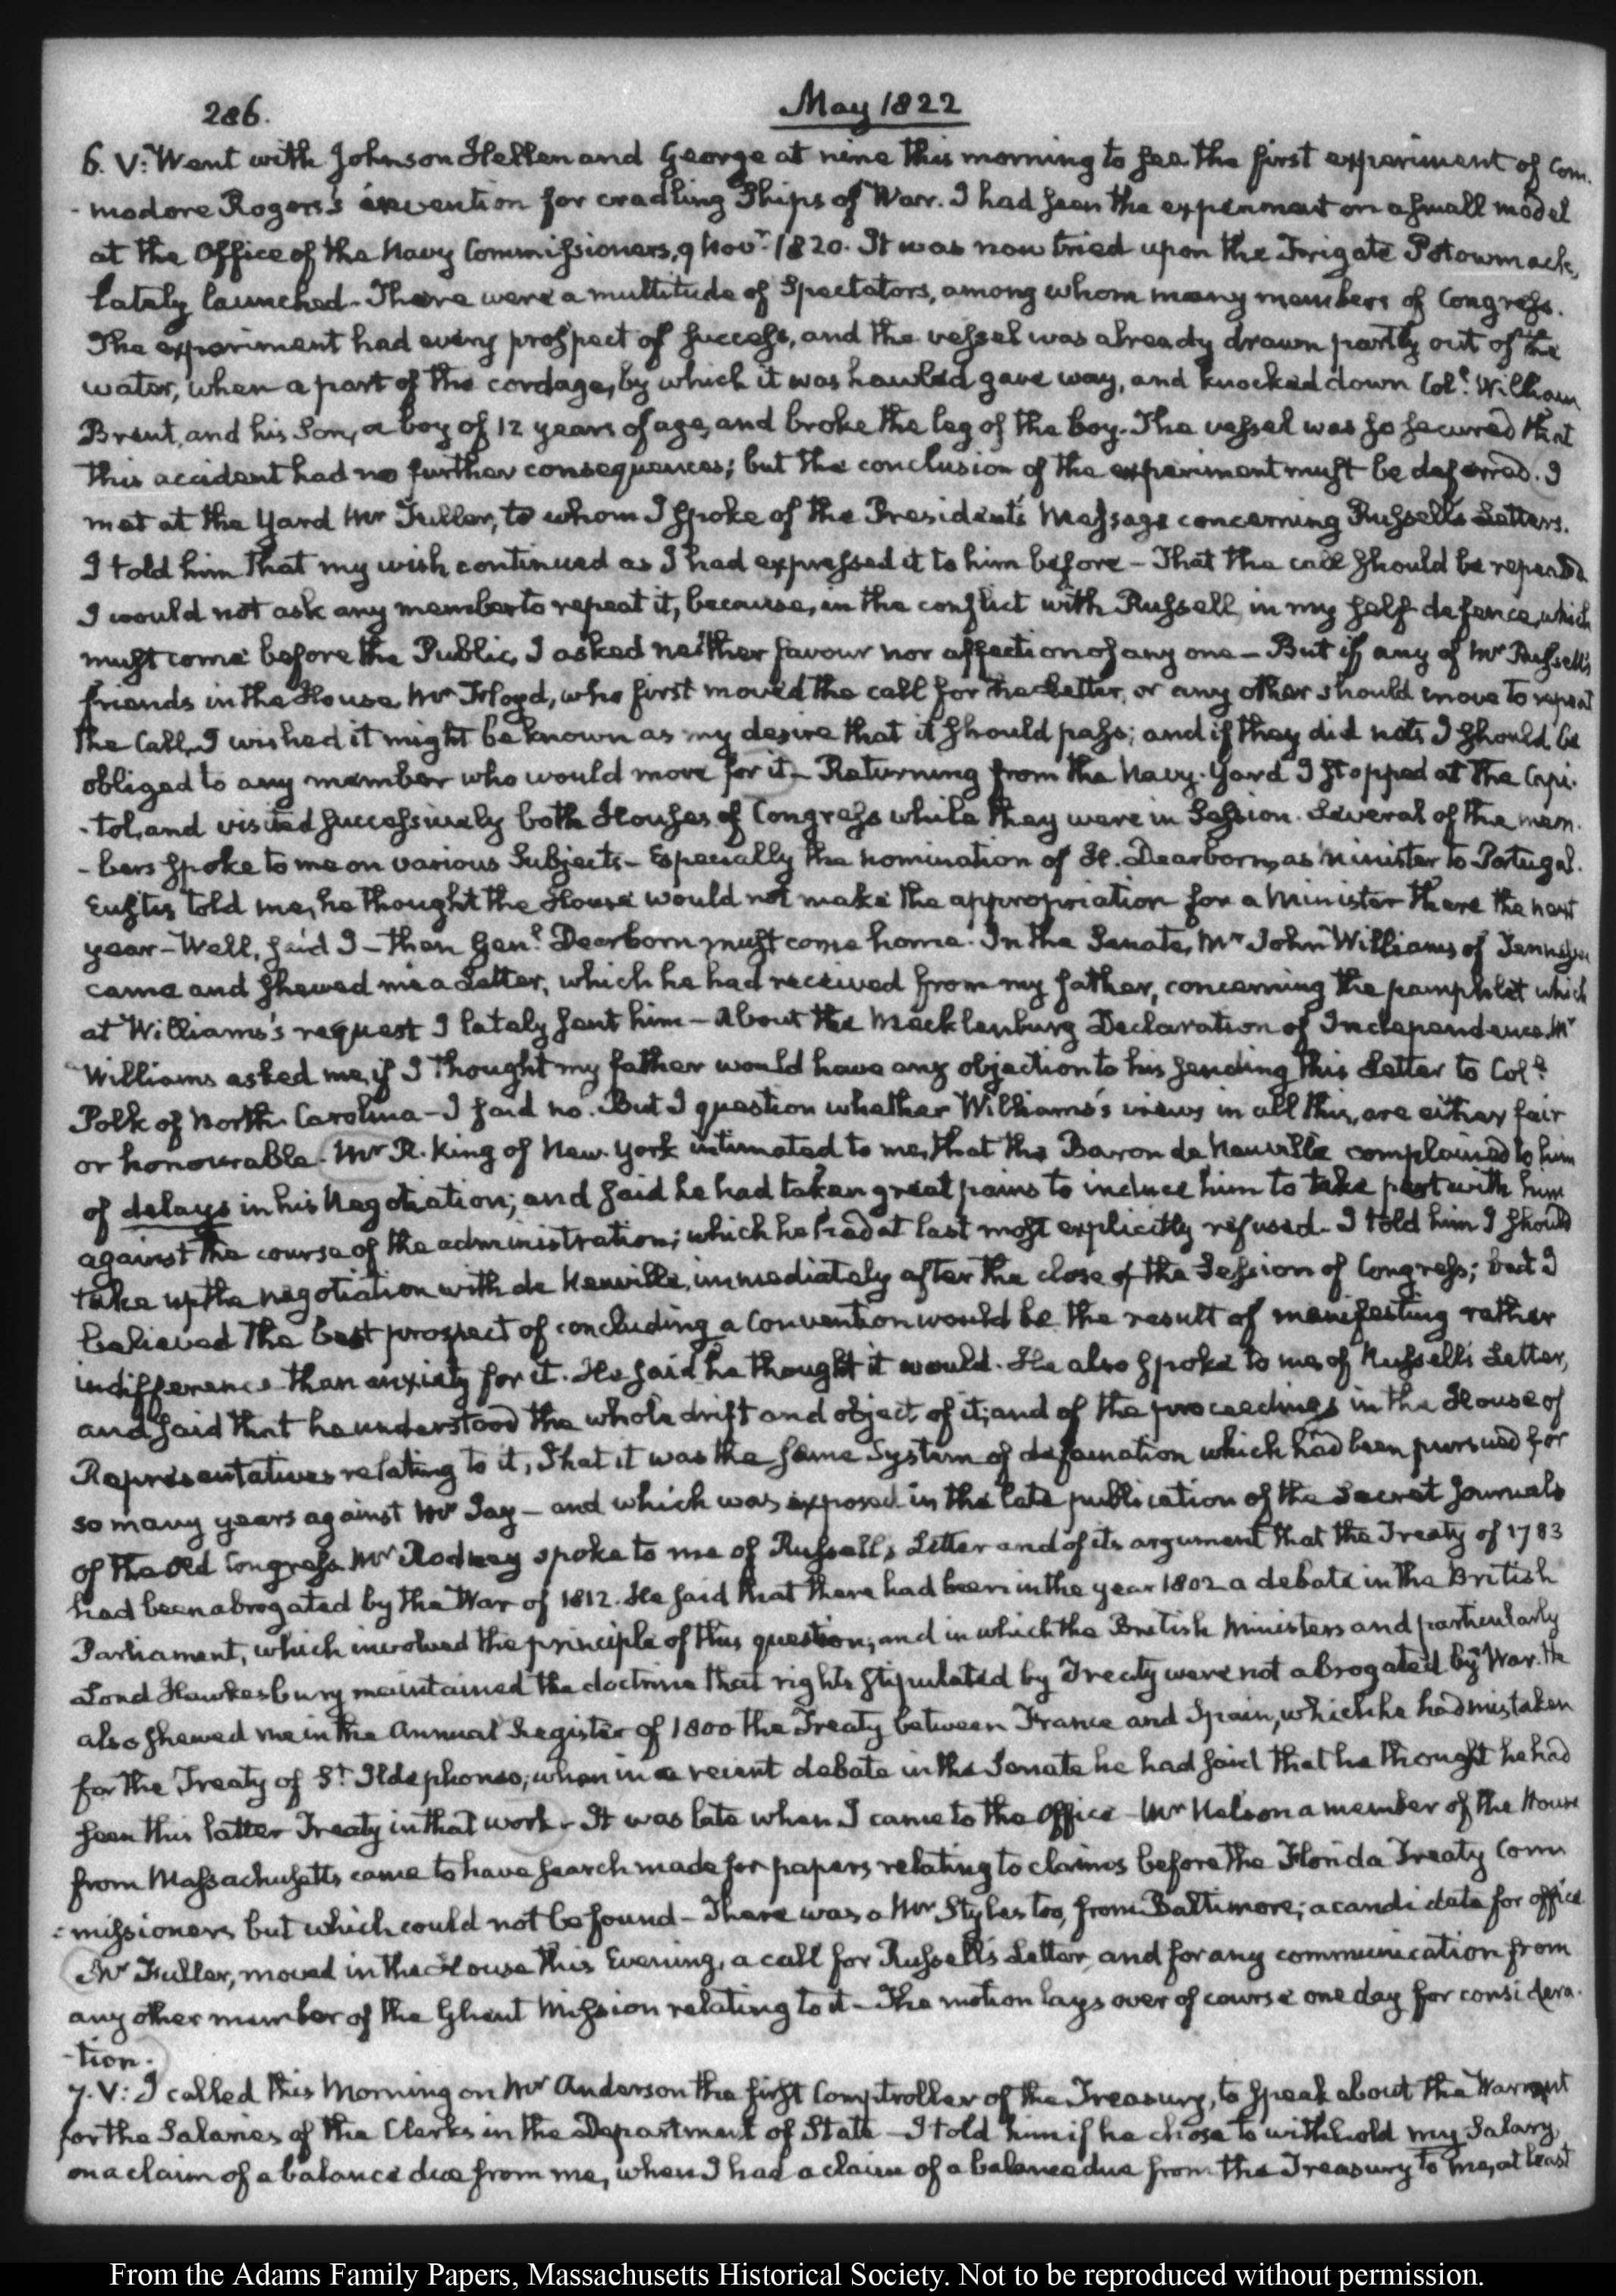 286.
May 1822
6. V: Went with Johnson Hellen and George at nine this morning to see the first experiment of Com-
-modore Rogers's invention for cradling Ships of War. I had seen the experiment on a small model
at the Office of the Navy Commissioners, 9 Novr. 1820. It was now tried upon the Frigate Potowmack,
lately launched. There were a multitude of Spectators, among whom many members of Congress.
The experiment had every prospect of success, and the vessel was already drawn partly out of the
water, when a part of the cordage, by which it was hawled gave way, and knocked down Coll. William
Brent, and his Son, a boy of 12 years of age, and broke the leg of the boy. The vessel was so secured that
this accident had no further consequences; but the conclusion of the experiment must be deferred. I
met at the Yard Mr Fuller, to whom I spoke of the President's Message concerning Russell's Letters.
I told him that my wish continued as I had expressed it to him before – That the call should be repeated
I would not ask any member to repeat it, because, in the conflict with Russell, in my self-defence, which
must come before the Public, I asked neither favour nor affection of any one – But if any of Mr Russell's
friends in the House, Mr Floyd, who first moved the call for the Letter, or any other should move to repeat
the Call, I wished it might be known as my desire that it should pass; and if they did not, I should be
obliged to any member who would move for it – Returning from the Navy-Yard I stopped at the Capi-
-tol, and visited successively both Houses of Congress while they were in Session. Several of the mem-
-bers spoke to me on various Subjects – Especially the nomination of H. Dearborn, as Minister to Portugal.
Eustis told me, he thought the House would not make the appropriation for a Minister there the next
year – Well, said I – then Genl. Dearborn must come home. In the Senate, Mr John Williams of Tennessee
came and shewed me a Letter, which he had received from my father, concerning the pamphlet which
at Williams's request I lately sent him – About the Mecklenburg Declaration of Independence. Mr
Williams asked me, if I thought my father would have any objection to his sending this Letter to Coll.
Polk of North-Carolina – I said no. But I question whether Williams's views in all this, are either fair
or honourable. Mr R. King of New-York intimated to me, that the Baron de Neuville complained to him
of delays in his Negotiation; and said he had taken great pains to induce him to take part with him
against the course of the administration; which he had at last most explicitly refused. I told him I should
take up the negotiation with de Neuville, immediately after the close of the Session of Congress; but I
believed the best prospect of concluding a Convention would be the result of manifesting rather
indifference than anxiety for it. He said he thought it would. He also spoke to me of Russell's Letter,
and said that he understood the whole drift and object of it; and of the proceedings in the House of
Representatives relating to it, That it was the same System of defamation which had been pursued for
so many years against Mr Jay – and which was exposed in the late publication of the Secret Journals
of the old Congress. Mr Rodney spoke to me of Russell's Letter and of its argument that the Treaty of 1783
had been abrogated by the War of 1812. He said that there had been in the year 1802 a debate in the British
Parliament, which involved the principle of this question, and in which the British Ministers and particularly
Lord Hawkesbury maintained the doctrine that rights stipulated by Treaty were not abrogated by War. He
also shewed me in the Annual Register of 1800 the Treaty between France and Spain, which he had mistaken
for the Treaty of St. Ildephonso; when in a recent debate in the Senate he had said that he thought he had
seen this latter Treaty in that work. It was late when I came to the Office – Mr Nelson a member of the House
from Massachusetts came to have search made for papers relating to claims before the Florida Treaty Com-
-missioners, but which could not be found – There was a Mr Styles too, from Baltimore; a candidate for office.
Mr Fuller, moved in the House this Evening, a call for Russell's Letter, and for any communication from
any other member of the Ghent Mission relating to it – The motion lays over of course one day for considera-
-tion.
7. V: I called this Morning on Mr Anderson the first Comptroller of the Treasury, to speak about the Warrant
for the Salaries of the Clerks in the Department of State – I told him if he chose to withhold my Salary,
on a claim of a balance due from me, when I had a claim of a balance due from the Treasury to me, at least
From the Adams Family Papers, Massachusetts Historical Society. Not to be reproduced without permission.